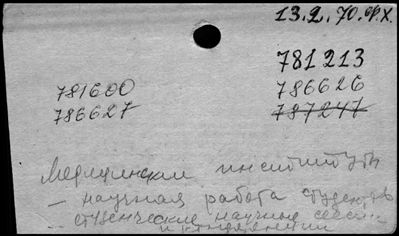 13.2.70. Ф.Х.
781213
781600 786626
786627 787247
Медицинские институты
- научная работа студентов
- студенческие научные сессии
и конференции